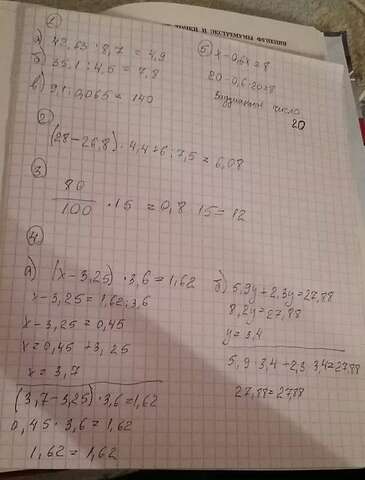 1
а) 42,63 : 8,7 = 4,9
б) 35,1 : 4,5 = 7,8
в) 9,1 : 0,065 = 140
2
(28-26,8) · 4,4+6 : 7,5 = 6,08
3
80
100 · 15 = 0,8 · 15 = 12
4
а) (x-3,25) · 3,6 = 1,62
x-3,25 = 1,62 : 3,6
x-3,25 = 0,45
x = 0,45 + 3,25
x = 3,7
(3,7-3,25) · 3,6 = 1,62
0,45 · 3,6 = 1,62
1,62 = 1,62
б) 5,9y + 2,3y = 27,88
8,2y = 27,88
y = 3,4
5,9 · 3,4 + 2,3 · 3,4 = 27,88
27,88 = 27,88
5 x-0,6x = 8
20-0,6·20=8
число
20